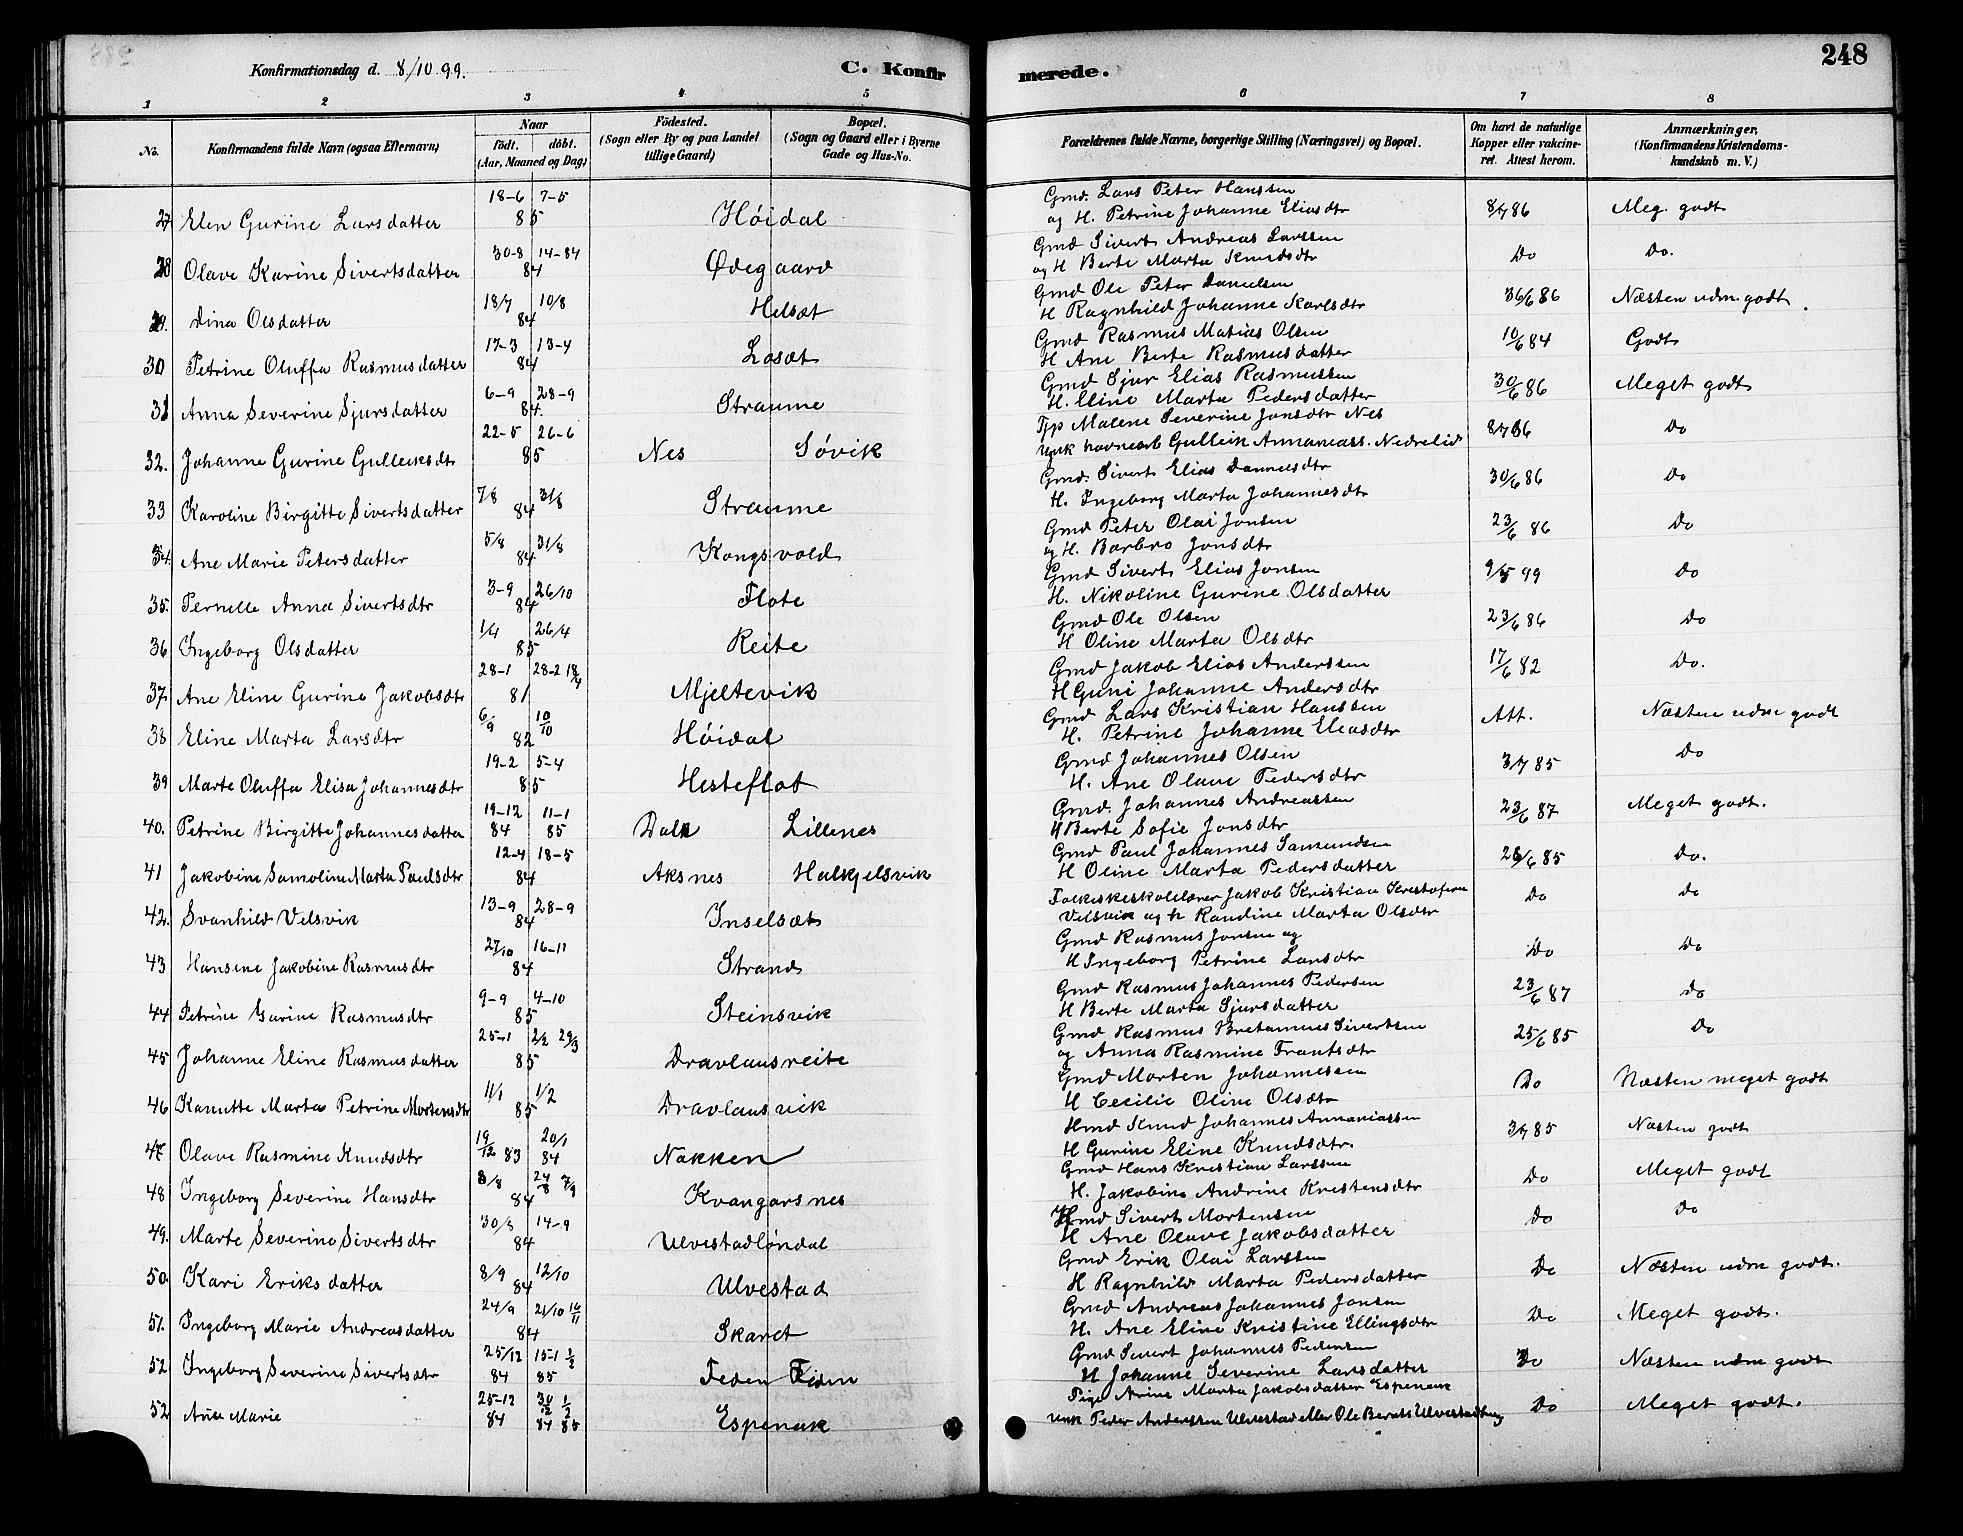 248
Konfirmationsdag d. 8/10 99.
C. Konfir merede.
1 2 3 4 5 6 7 8
No. Konfirmandens fulde Navn (ogsaa Efternavn) Naar Födt. döbt. (Aar, Maaned og Dag) Födested. (Sogn eller By og paa Landet tillige Gaard) Bopæl. (Sogn og Gaard eller i Byerne Gade og Hus-No. Forældrenes fulde Navne, borgerlige Stilling (Næringsvei) og Bopæl. Om havt de naturlige Kopper eller vakcineret. Attest herom. Anmærkninger, (Konfirmandens Kristendomskundskab m. V.)
27 Elen Gurine Larsdatter 18-6 7-5 85 Høidal Gmd. Lars Peter Hanssen
og H. Petrine Johanne Eliasdtr 8/7 86 Meg. godt
28 Olave Karine Sivertsdatter 30-8 14-84 84 Ødegaard Gmd Sivert Andreas Larssen
og H Berte Marta Knudsdtr Do Do.
29. Dina Olsdatter 18/7 10/8 84 Helsæt Gmd Ole Peter Danielsen
H Ragnhild Johanne Karlsdtr 30/6 86 Næsten udm. godt.
30 Petrine Oluffa Rasmusdatter 17-3 13-4 84 Losæt Gmd Rasmus Matias Olsen
H Ane Berte Rasmusdatter 10/6 84 Godt
31 Anna Severine Sjursdatter 6-9 28-9 84. Straume Gmd Sjur Elias Rasmussen
H. Eline Marta Pedersdatter 30/6 86 Meget godt
32. Johanne Gurine Gulleiksdtr 22-5 26-6 85 Nes Søvik Tjp Malene Severine Jonsdtr Nes
Unk havnearb Gulleik Annaniass. Nedrelid 8/7 86 Do
33 Karoline Birgitte Sivertsdatter 7/8 31/8 84 Straume Gmd. Sivert Elias Danielsdtr
H. Ingeborg Marta Johannesdtr 30/6 86 Do
34. Ane Marie Petersdatter 5/8 31/8 84 Kongsvold Gmd Peter Olai Jonsen
og H. Barbro Jonsdtr 23/6 86 Do
35. Pernelle Anna Sivertsdtr 3-9 26/10 84 Flote Gmd Sivert Elias Jonsen
H. Nikoline Gurine Olsdatter 9/5 99 Do
36 Ingeborg Olsdatter 1/4 26/4 85 Reite Gmd Ole Olsen
H Oline Marta Olsdtr 23/6 86 Do
37. Ane Eline Gurine Jakobsdtr 28-1 28-2 18/4 81 Mjeltevik Gmd Jakob Elias Anderssen
H Guni Johanne Andersdtr 17/6 82 Do.
38 Eline Marta Larsdtr 6/9 10/10 82 Høidal Gmd Lars Kristian Hanssen
H. Petrine Johanne Eliasdtr Att. Næsten udm godt
39 Marte Oluffa Elisa Johannesdtr 19-2 5-4 85 Hesteflot Gmd Johannes Olsen
H. Ane Olave Pedersdtr 3/7 85 Do
40. Petrine Birgitte Johannesdatter 19-12 11-1 84 85 Dale Lillenes Gmd. Johannes Andreassen
H Berte Sofie Jonsdtr 23/6 87 Meget godt.
41 Jakobine Samoline Marta Paulsdtr 12-4 18-5 84 Aksnes Halkjelsvik Gmd Paul Johannes Samundsen
H Oline Marta Pedersdatter 26/6 85 Do.
42. Svanhild Velsvik 13-9 28-9 84 Inselsæt Folkeskoleslærer Jakob Kristian Kristofersen
Velsvik og h Randine Marta Olsdtr Do Do
43 Hansene Jakobine Rasmusdtr 27/10 16-11 84 Strand Gmd Rasmus Jonsen og
H Ingeborg Petrine Larsdtr Do Do
44 Petrine Gurine Rasmusdtr 9-9 4-10 85 Steinsvik Gmd Rasmus Johannes Pedersen
H Berte Marta Sjursdatter 23/6 87 Do
45 Johanne Eline Rasmusdatter 25-1 2/2 29/3 85 Dravlausreite Gmd Rasmus Bretanius Sivertsen
og Anna Rasmine Frantsdtr 25/6 85 Do
46 Kanutte Marta Petrine Mortensdtr 11/1 1/2 85 Dravlausvik Gmd Morten Johannessen
H Cecilie Oline Olsdtr Do Næsten meget godt
47 Olave Rasmine Knudsdtr 19/12 83 20/1 84 Nakken Hmd Knud Johannes Annaniassen
H Gurine Eline Knudsdtr. 3/7 85 Næsten godt
48 Ingeborg Severine Hansdtr 8/8 24/8 7/9 84 Kvangarsnes Gmd Hans Kristian Larssen
H. Jakobine Andrine Kristensdtr Do Meget godt
49. Marte Severine Sivertsdtr 30/8 14-9 84 Ulvestadløndal Hmd Sivert Mortensen
H Ane Olave Jakobsdatter Do Do
50. Kari Eriksdatter 8/9 12/10 84 Ulvestad Gmd Erik Olai Larssen
H Ragnhild Marta Pedersdatter Do Næsten udm godt.
51. Ingeborg Marie Andreasdatter 24/9 21/10 16/11 84 Skaret Gmd Andreas Johannes Jonsen
H. Ane Eline Kristine Ellingsdtr Do Meget godt.
52 Ingeborg Severine Sivertsdtr 25/12 15-1 1/2 84 85 Feden Gmd Sivert Johannes Pedersen
H Johanne Severine Larsdatter Do Næsten udm godt
52 Ane Marie 25-12 30/12 1/2 84 84 85 Espenak Pige Arine Marta Jakobsdatter Espenak
unk Peder Anderssen Ulvestad eller Ole Bernts Ulvestadbug Do Meget godt.